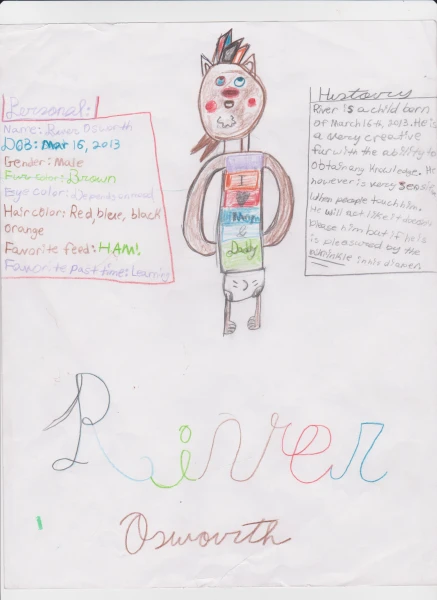 Personal:
Name: River Osworth
DOB: Mar 15, 2013
Gender: Male
Fur color: Brown
Eye color: Depends on mood
Hair color: Red, blue, black
orange
Favorite feed: HAM!
Favorite past time: Learning
I
Mom
&
Daddy
History
River is a child born
of March 16th, 2013. He is
a very creative
fur with the ability to
obtain any knowledge. He
however is very
when people touch him.
He will not like it
please him but if he is
is by the
in his diaper
River
Osworth